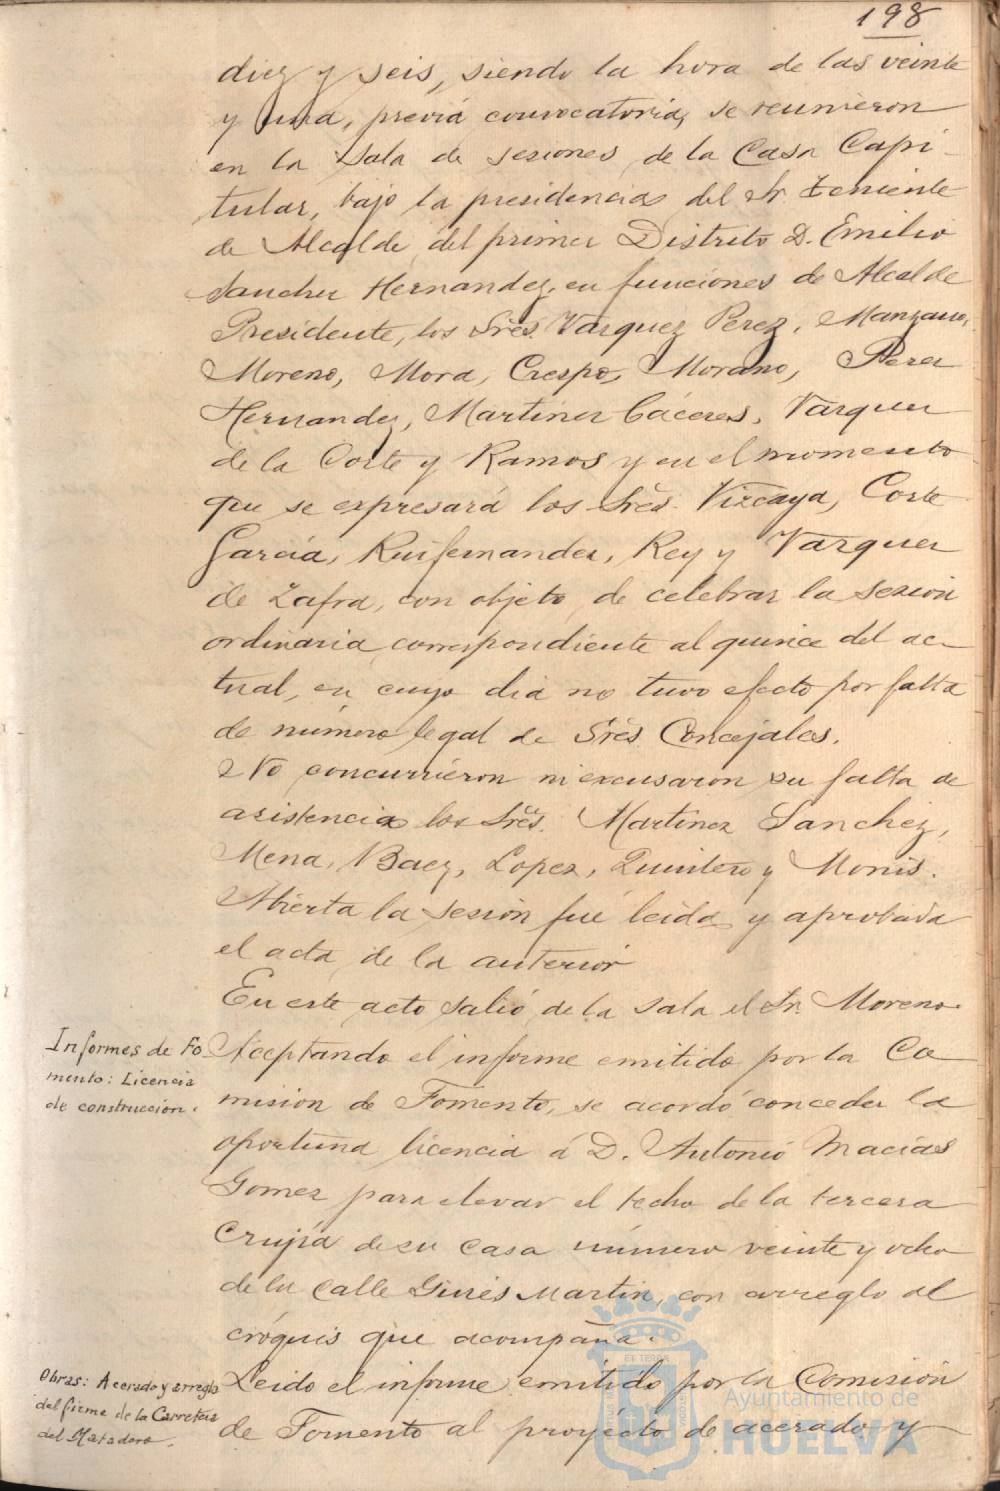 198
diez y seis, siendo la hora de las veinte
y una, previa convocatoria, se reunieron
en la sala de sesiones de la Casa Capi-
tular, bajo la presidencia del Sr. Teniente
de Alcalde del primer Distrito D. Emilio
Sanchez Hernandez, en funciones de Alcalde
Presidente, los Sres. Vazquez Perez, Manzano,
Moreno, Mora, Crespo, Morano, Perez
Hernandez, Martinez Cáceres, Vazquez
de la Corte y Ramos y en el momento
que se expresará los Sres. Vizcaya, Corte
García, Ruifernandez, Rey y Vazquez
de Zafra, con objeto de celebrar la sesion
ordinaria correspondiente al quince del ac-
tual, en cuyo dia no tuvo efecto por falta
de número legal de Sres. Concejales.
No concurrieron ni excusaron su falta de
asistencia los Sres. Martinez Sanchez,
Mena, Baez, Lopez, Quintero y Monis.
Abierta la sesión fué leida y aprobada
el acta de la anterior
En este acto salió de la sala el Sr. Moreno.
Informes de Fo-
mento: Licencia
de construcción.
Aceptando el informe emitido por la Co
misión de Fomento, se acordó conceder la
oportuna licencia á D. Antonio Macías
Gomez para elevar el techo de la tercera
crujía de su casa número veinte y ocho
de la calle Ginés Martin, con arreglo al
cróquis que acompaña.
Obras: Acerado y arreglo
del firme de la Carretera
del Matadero.
Leido el informe emitido por la Comisión
de Fomento al proyecto de acerado y
Ayuntamiento de
HUELVA